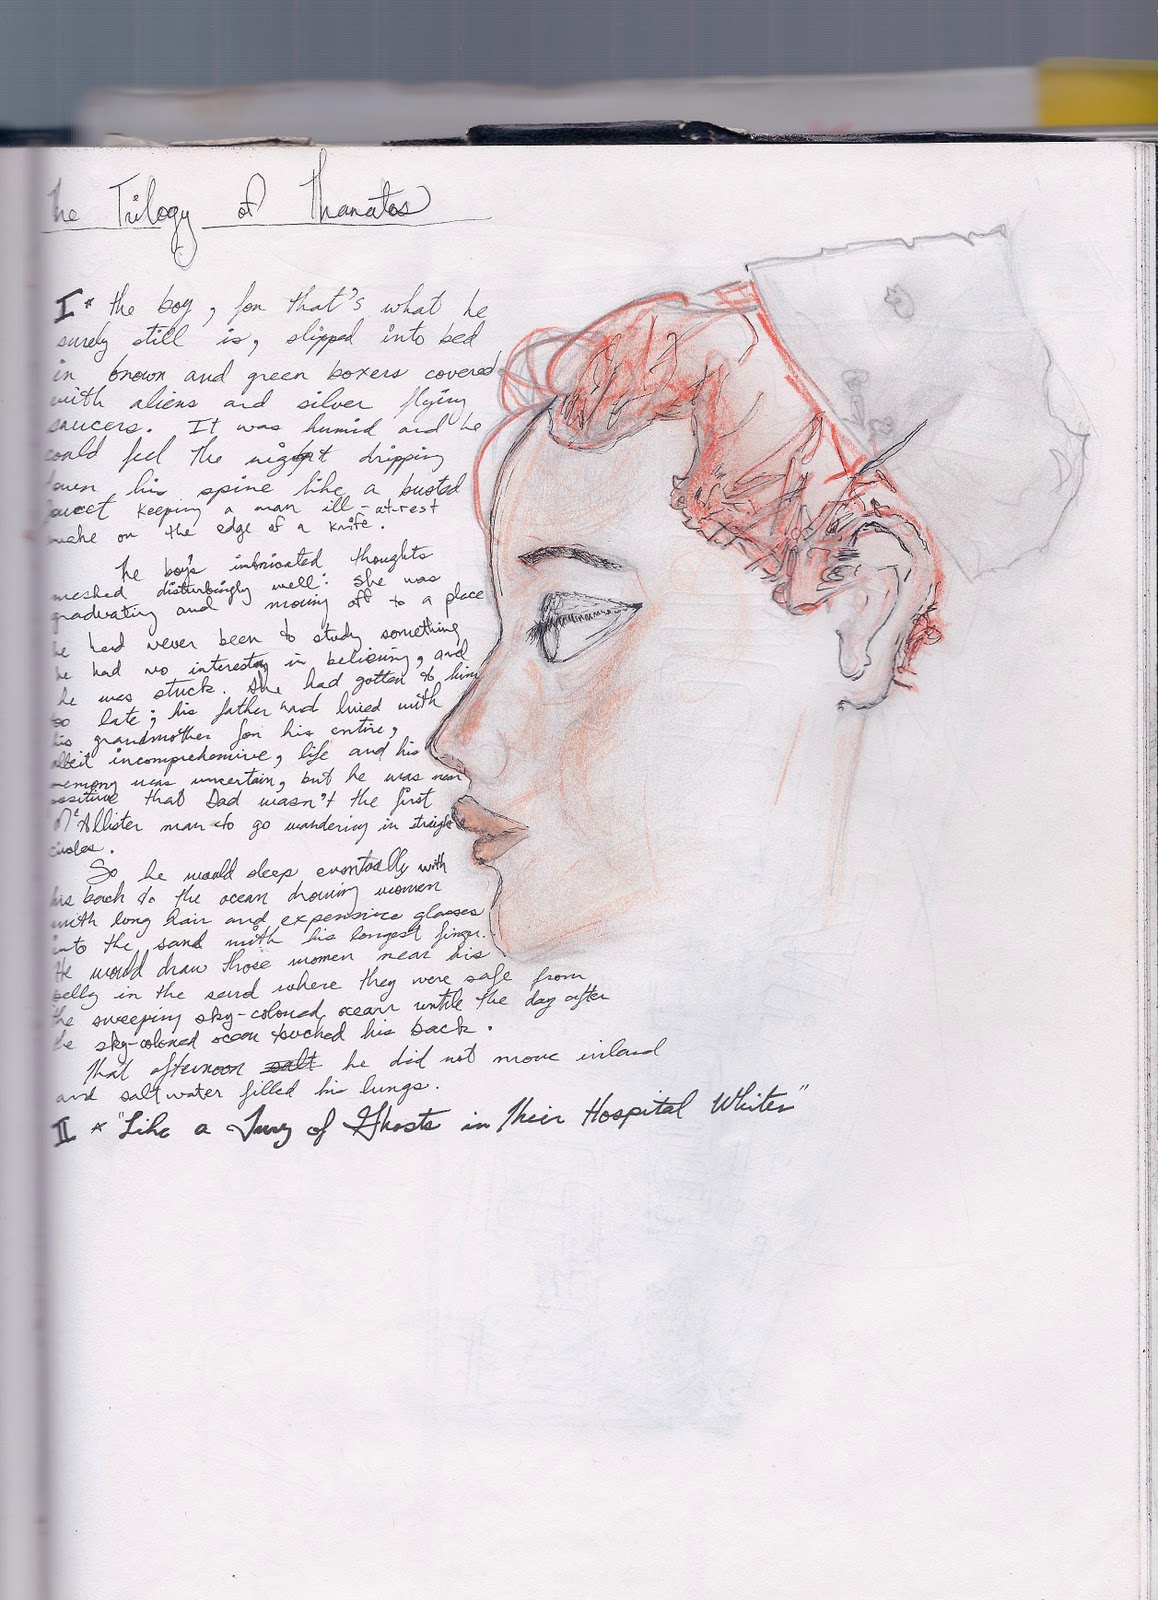 The Trilogy of Thanatos
I * the boy, for that's what he
surely still is, slipped into bed
in brown and green boxers covered
with aliens and silver flying
saucers. It was humid and he
could feel the night dripping
down his spine like a busted
faucet keeping a man ill-at-rest
awake on the edge of a knife.
The boy's imbricated thoughts
meshed disturbingly well: she was
graduating and moving off to a place
he had never been to study something
he had no interest in believing, and
he was stuck. She had gotten to him
too late; his father had lived with
his grandmother for his entire,
albeit incomprehensive, life and his
memory was uncertain, but he was near
positive that Dad wasn't the first
McAllister man to go wandering in straight
circles.
So he would sleep eventually with
his back to the ocean drawing women
with long hair and expensive glasses
into the sand with his longest finger.
He would draw those women near his
belly in the sand where they were safe from
the sweeping sky-colored ocean until the day after
the sky-colored ocean touched his back.
That afternoon salt he did not move inland
and saltwater filled his lungs.
II * "Like a Jury of Ghosts in Their Hospital Whites"